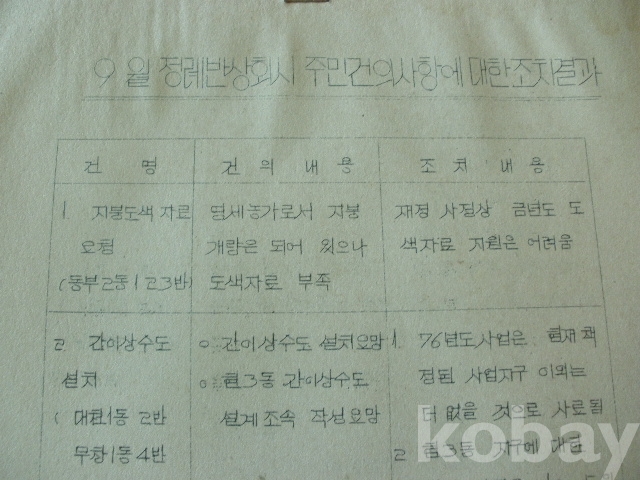 9월 정례반상회시 주민건의사항에 대한 조치결과
건 명
건 의 내 용
조 치 내 용
1. 지붕도색 자료
요청
(동부2동 1 2 3반)
영세농가로서 지붕
개량은 되어 있으나
도색자료 부족
재정 사정상 금년도 도
색자료 지원은 어려움
2. 간이상수도
설치
(대흰1동 2반
무창1동 4반
o 간이상수도 설치요망
o 흰3동 간이상수도
설계조속 작성요망
1. 76년도사업은 현재 책
정된 사업지구 이외는
더 없을 것으로 사료됨
2 3동 지구에 대한
kobay